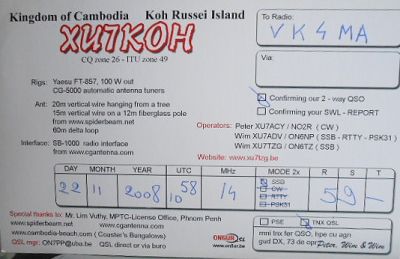 Kingdom of Cambodia Koh Russei Island
To Radio:
XU7KOH
VK4MA
CQ zone 26 - ITU zone 49
Via:
Rigs: Yaesu FT-857, 100 W out
CG-5000 automatic antenna tuners
Confirming our 2 - way QSO
Ant: 20m vertical wire hanging from a tree
Confirming your SWL - REPORT
15m vertical wire on a 12m fiberglass pole
from www.spiderbeam.net
60m delta loop
Operators: Peter XU7ACY / NO2R ( CW )
Wim XU7ADV / ON6NP ( SSB - RTTY - PSK31 )
Wim XU7TZG / ON6TZ ( SSB )
Interface: SB-1000 radio interface
from www.cgantenna.com
Website: www.xu7tzg.be
DAY MONTH YEAR UTC MHz MODE 2x R S T
22 11 2008 10 58 14 SSB 5 9 -
CW
RTTY
PSK31
Special thanks to: Mr. Lim Vuthy, MPTC-License Office, Phnom Penh
www.spiderbeam.net www.cgantenna.com
www.cambodia-beach.com ( Coaster's Bungalows )
QSL mgr: ON7PP@uba.be QSL direct or via buro
www.onllar.be
PSE TNX QSL
mni tnx for QSO, hpe cu agn
gud DX, 73 de opr Peter, Wim & Wim